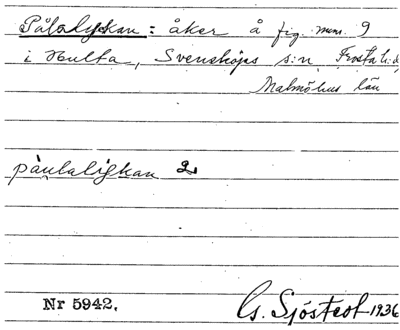 Pålalyckan: åker å fig. num. 9
i Hulta, Svensköps s:n, Frosta h:d,
Malmöhus län
påulalikan 2
Nr 5942.
G. Sjöstedt 1936